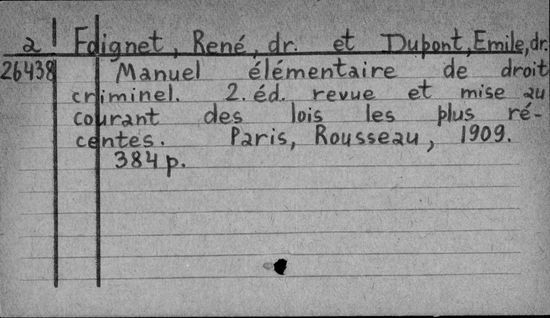 2 Foignet, René, dr. et Dupont, Emile, dr.
26438 Manuel élémentaire de droit
criminel. 2. éd. revue et mise au
courant des lois les plus ré-
centes. Paris, Rousseau, 1909.
384 p.